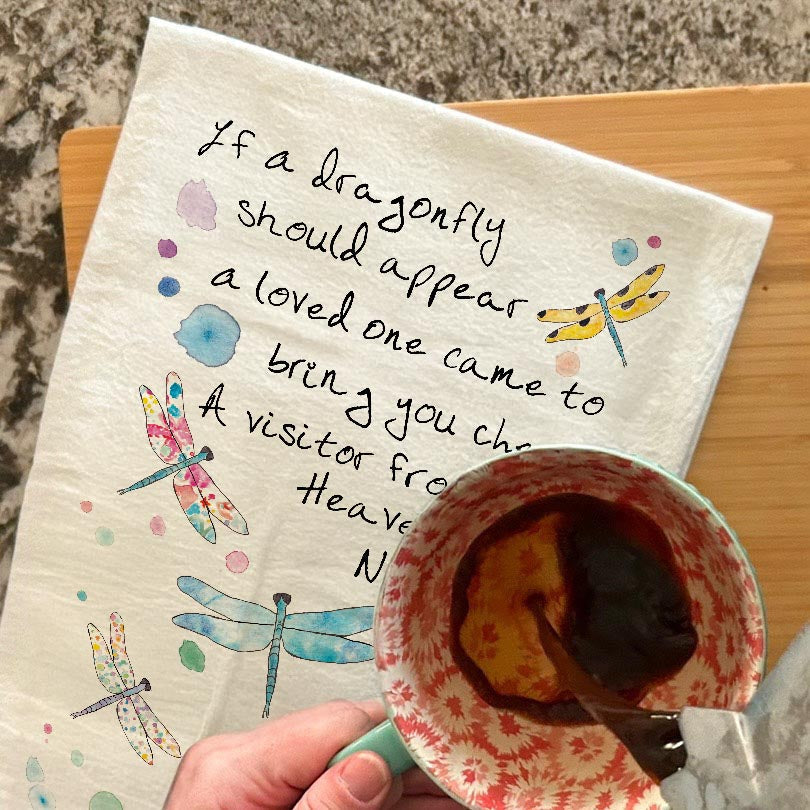 If a dragonfly
should appear
a loved one came to
bring you
A visitor